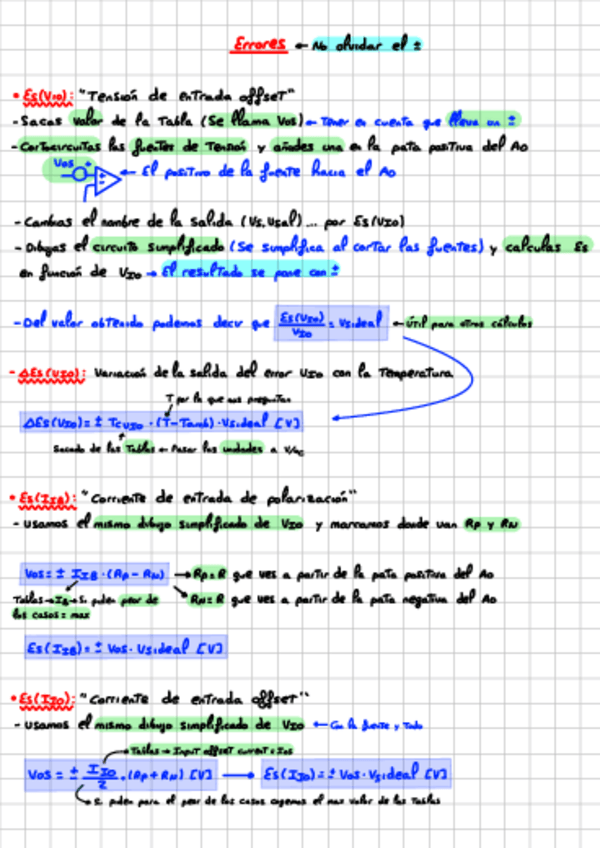 Errores ← No olvidar el ±
• Es(VIO): "Tensión de entrada offset"
- Sacas valor de la Tabla (Se llama Vos) ← Tener en cuenta que lleva un ±
- Cortocircuitas las fuentes de Tensión y añades una en la pata positiva del Ao
Vos
+
← El positivo de la fuente hacia el Ao
- Cambias el nombre de la salida (Vs, Usal)... por Es(VIO)
- Dibujas el circuito simplificado (Se simplifica al cortar las fuentes) y calculas Es
en función de VIO → El resultado se pone con ±
- Del valor obtenido podemos decir que Es(VIO)/VIO = Vsideal ← útil para otros cálculos
- ΔEs(VIO): Variación de la salida del error VIO con la Temperatura
T por la que nos preguntan
ΔEs(VIO) = ± TCVIO · (T-Tamb) · Vsideal [V]
Sacado de las Tablas ← Pasar las unidades a V/ºC
• Es(IIB): "Corriente de entrada de polarización"
- Usamos el mismo dibujo simplificado de VIO y marcamos donde van Rp y RN
Vos = ± IIB · (Rp - RN) → Rp = R que ves a partir de la pata positiva del Ao
Tablas → IB → Si piden peor de los casos = max
RN = R que ves a partir de la pata negativa del Ao
Es(IIB) = ± Vos · Vsideal [V]
• Es(IIO): "Corriente de entrada offset"
- Usamos el mismo dibujo simplificado de VIO ← Con la fuente y Todo
Tablas → Input offset current = Ios
Vos = ± IIO/2 · (Rp + RN) [V] → Es(IIO) = ± Vos · Vsideal [V]
Si piden para el peor de los casos cogemos el max valor de las Tablas